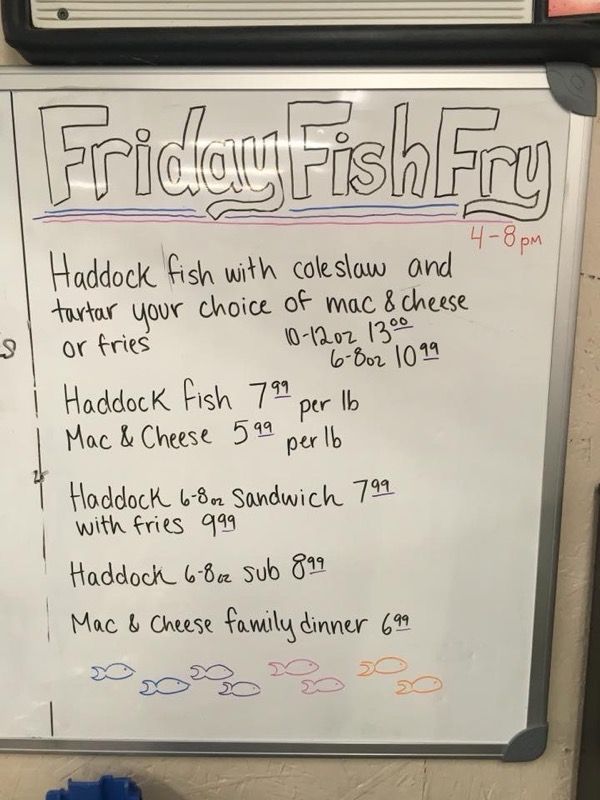 Friday Fish Fry
4-8pm
Haddock fish with coleslaw and
tartar your choice of mac & cheese
or fries 10-12oz 13.00
6-8oz 10.99
Haddock fish 7.99 per lb
Mac & Cheese 5.99 per lb
Haddock 6-8oz sandwich 7.99
with fries 9.99
Haddock 6-8oz sub 8.99
Mac & Cheese family dinner 6.99